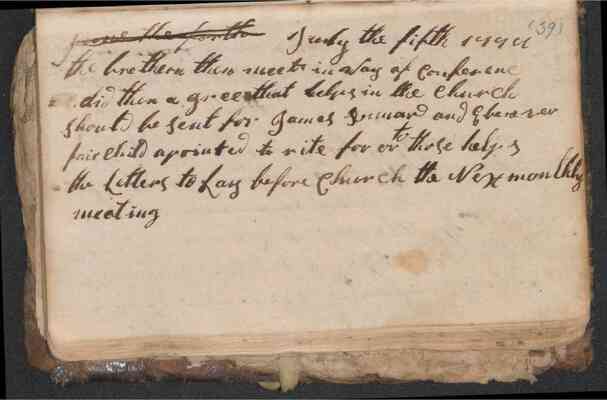 June the forth July the fifth 1794 (39)
the brethern then meet in Way of Conferenc
did then a gree that helps in the Church
should be sent for James Inmard and Ebenezer
fairchild apointed to rite for or to those helps
the Letters to Lay before Church the Nex monthly
meeting